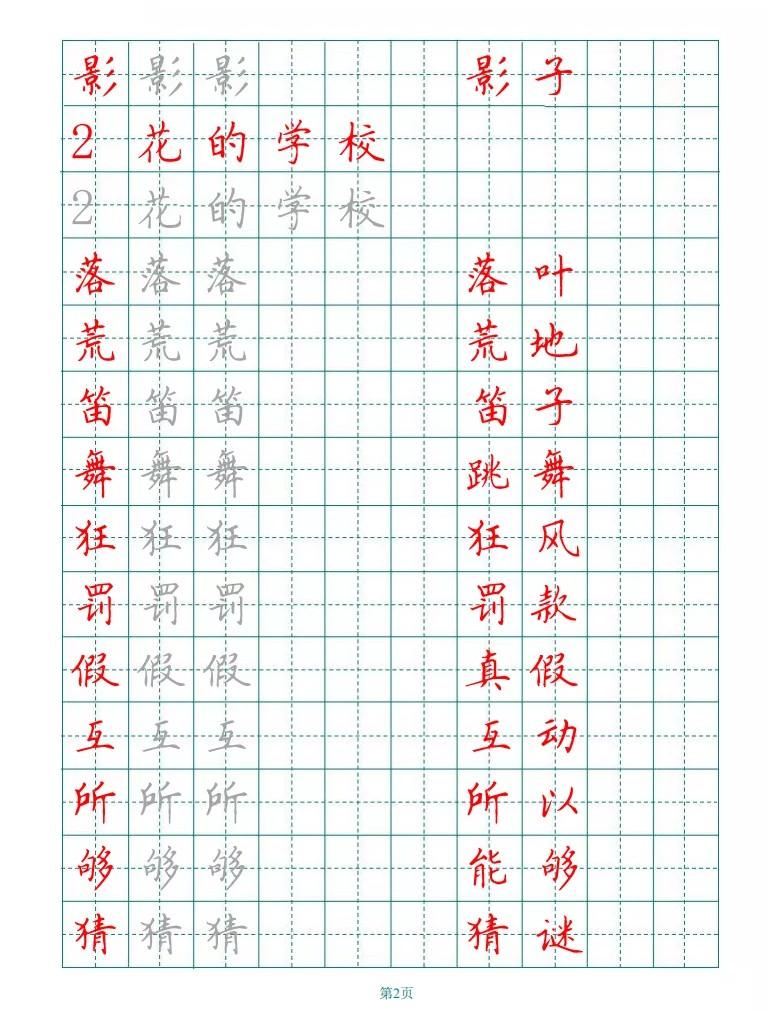 影影影 影子
2花的学校
2花的学校
落落落 落叶
荒荒荒 荒地
笛笛笛 笛子
舞舞舞 跳舞
狂狂狂 狂风
罚罚罚 罚款
假假假 真假
互互互 互动
所所所 所以
够够够 能够
猜猜猜 猜谜
第2页